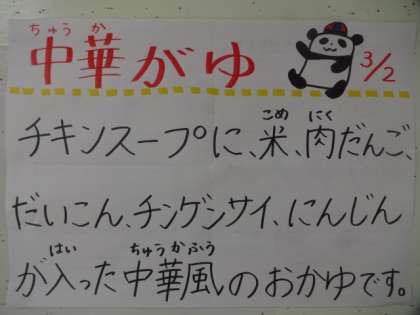 ちゅうか
中華がゆ 3/2
こめ にく
チキンスープに、米、肉だんご、
だいこん、チンゲンサイ、にんじん
はい ちゅうかふう
が入った中華風のおかゆです。